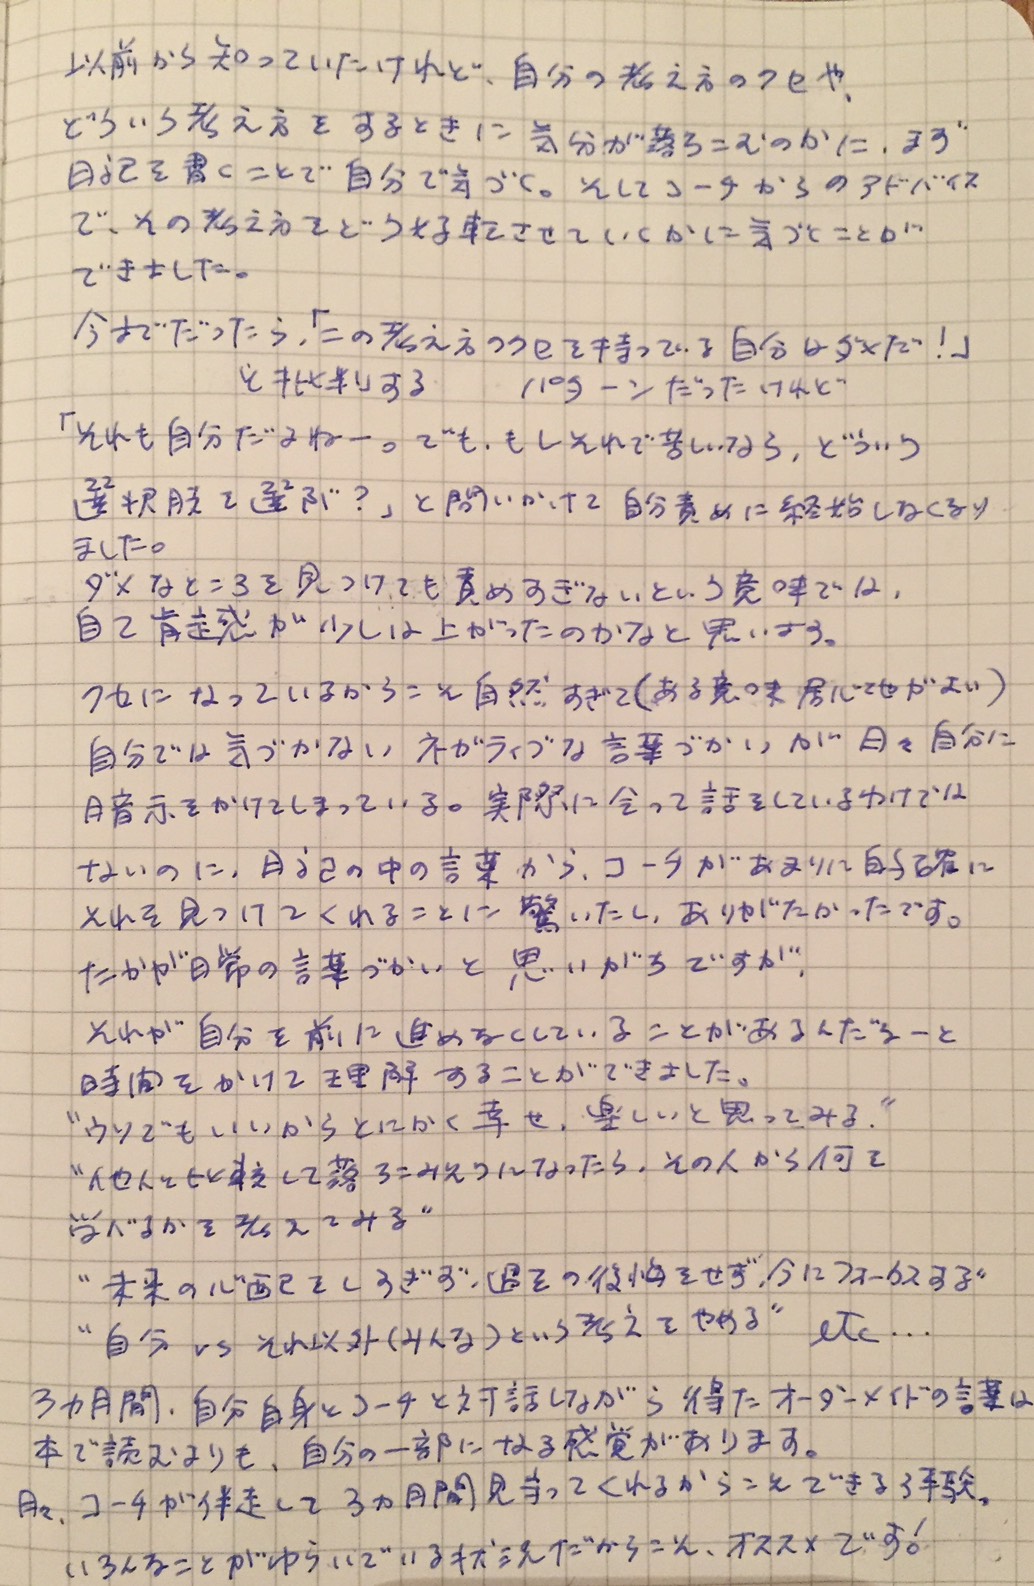 以前から知っていたけれど、自分の考え方のクセや、
どういう考え方をするときに気分が落ちこむのかに、まず
日記を書くことで自分で気づく。そしてコーチからのアドバイス
で、その考え方をどう好転させていくかに気づくことが
できました。
今までだったら、「この考え方のクセを持っている自分はダメだ!」
と批判する パターンだったけれど
「それも自分だよねー。でも、もしそれで苦しいなら、どういう
選択肢を選ぶ?」と問いかけて自分責めに終始しなくなり
ました。
ダメなところを見つけても責めすぎないという意味では、
自己肯定感が少しは上がったのかなと思います。
クセになっているからこそ自然すぎて(ある意味居心地がよい)
自分では気づかないネガティブな言葉づかいが日々自分に
暗示をかけてしまっている。実際に会って話をしているわけでは
ないのに、日記の中の言葉から、コーチがあまりに的確に
それを見つけてくれることに驚いたし、ありがたかったです。
たかが日常の言葉づかいと思いがちですが、
それが自分を前に進めなくしていることがあるんだなーと
時間をかけて理解することができました。
"ウソでもいいからとにかく幸せ、楽しいと思ってみる"
"他人と比較して落ちこみそうになったら、その人から何を
学べるかを考えてみる"
"未来の心配をしすぎず、過去の後悔をせず、今にフォーカスする"
"自分 vs それ以外(みんな)という考えをやめる" etc...
3カ月間、自分自身とコーチと対話しながら得たオーダーメイドの言葉は
本で読むよりも、自分の一部になる感覚があります。
日々、コーチが伴走して3カ月間見守ってくれるからこそできる体験。
いろんなことがゆらいでいる状況だからこそ、オススメです!